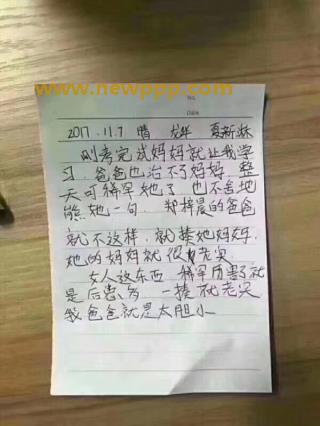 www.newppp.com
No.
Date
2017.11.7 晴
刚考完试妈妈就让我学
习.爸爸也治不了妈妈.整
天可稀罕她了.也不舍地
熊她一句.郑梓晨的爸爸
就不这样.就揍她妈妈.
她的妈妈就很老实
女人这东西.稀罕厉害了就
是后患.岁 一揍就老实
我爸爸就是太胆小